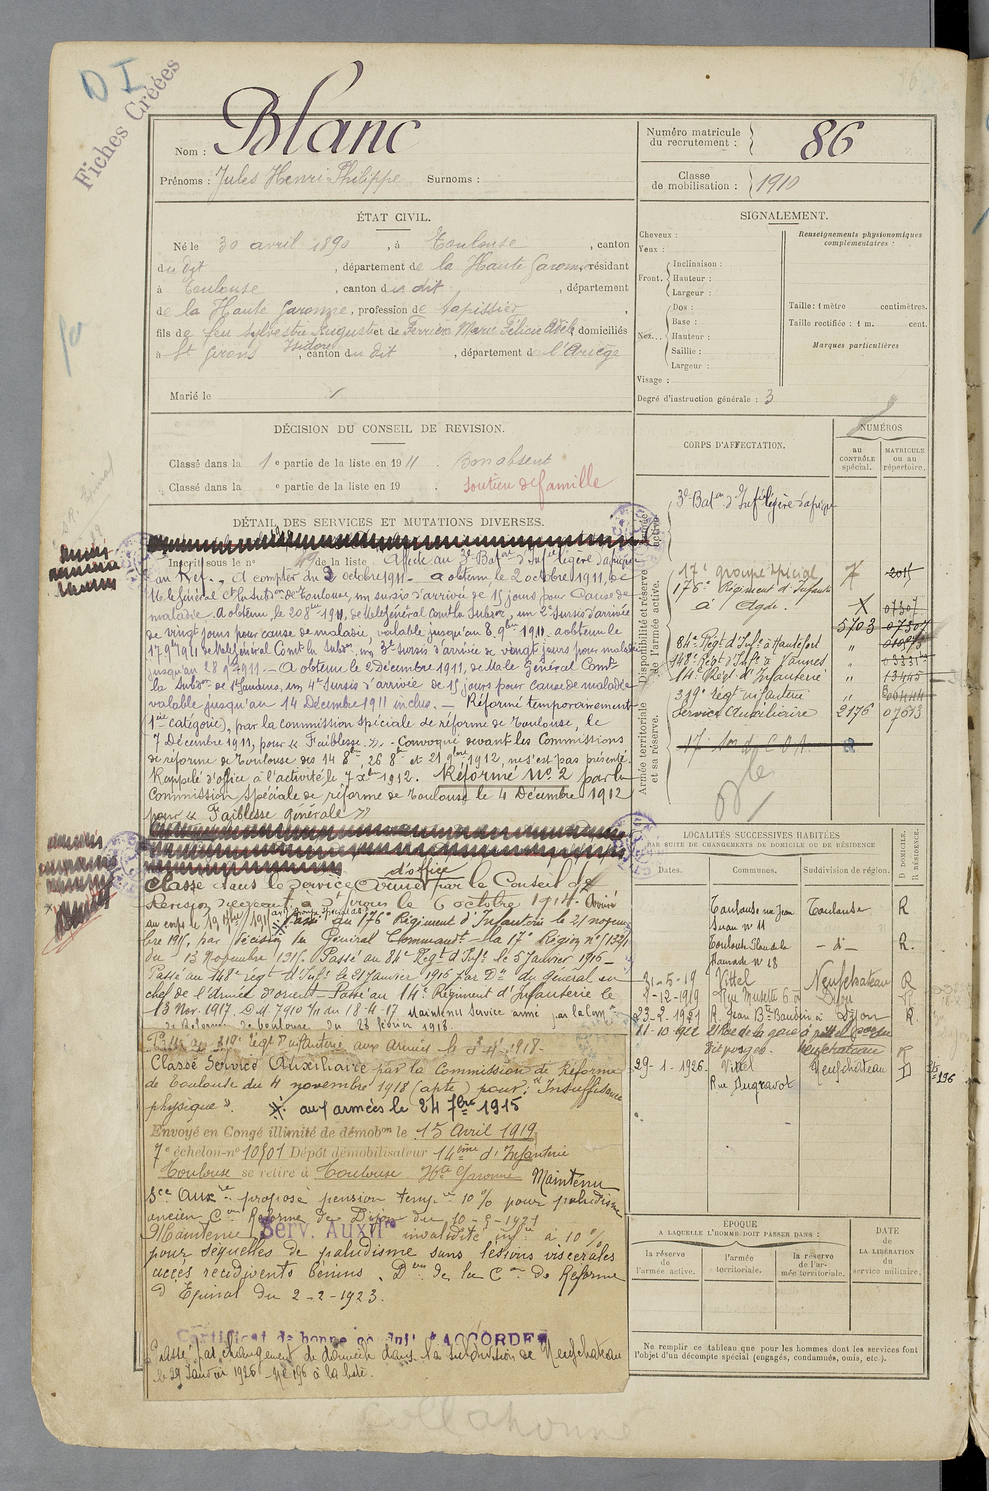 D I
Fiches Créées
Nom : Blanc
Prénoms : Jules Henri Philippe Surnoms :
Numéro matricule du recrutement : 86
Classe de mobilisation : 1910
ÉTAT CIVIL.
Né le 30 avril 1890, à Toulouse, canton
du dit, département de la Haute Garonne, résidant
à Toulouse, canton du dit, département
de la Haute Garonne, profession de tapissier,
fils de feu Sylvestre Auguste Isidore et de Ferrière Marie Félicie Adèle domiciliés
à St Girons, canton du dit, département de l'Ariège
Marié le
SIGNALEMENT.
Cheveux :
Yeux :
Front.
Inclinaison :
Hauteur :
Largeur :
Nez...
Dos :
Base :
Hauteur :
Saillie :
Largeur :
Visage :
Renseignements physionomiques complémentaires :
Taille : 1 mètre centimètres.
Taille rectifiée : 1 m. cent.
Marques particulières
Degré d'instruction générale : 3
DÉCISION DU CONSEIL DE REVISION.
Classé dans la 1e partie de la liste en 1911. Bon absent
Classé dans la e partie de la liste en 19 . Soutien de famille
DÉTAIL DES SERVICES ET MUTATIONS DIVERSES.
Inscrit sous le n° de la liste. Affecté au 3e Baton d'Infie légère d'afrique
A compter du 2 octobre 1911 - a obtenu le 2 octobre 1911, de
Mr le Général Ct la Subdon de Toulouse, un sursis d'arrivée de 15 jours pour Cause de
maladie. A obtenu le 20 8bre 1911, de Mr le Général Comt la Subdon, un 2e Sursis d'arrivée
de vingt jours pour cause de maladie, valable jusqu'au 8 9bre 1911. a obtenu le
17 9bre 1911 de Mr le Général Comt la Subdon, un 3e sursis d'arrivée de vingt jours pour maladie
jusqu'au 28 9bre 1911. - A obtenu le 2 décembre 1911, de Mr le Général Comt
la Subdon de , un 4e Sursis d'arrivée de 15 jours pour cause de maladie
valable jusqu'au 14 Décembre 1911 inclus. - Réformé temporairement
1ère catégorie), par la commission spéciale de réforme de Toulouse, le
7 Décembre 1911, pour « Faiblesse ». - Convoqué devant les Commissions
de réforme de Toulouse des 14 8bre, 26 8bre et 21 9bre 1912, ne s'est pas présenté.
Rappelé d'office à l'activité le 7 xbre 1912. Réformé N° 2 par la
Commission Spéciale de réforme de Toulouse le 4 Décembre 1912
pour « Faiblesse générale »
Classé dans le Service Armé d'office par le Conseil de
Révision à St Girons le 6 octobre 1914. Arrivé
au corps le 19 Passé au 176e Régiment d'Infanterie le 21 novem
bre 1915, par décision du Général Commandt la 17e Région n° 11321
du 13 Novembre 1915. Passé au 84e Régt d'Infie le 5 Janvier 1916 -
Passé au 148e régt d'Infie le 21 Janvier 1916 par Don du général en
chef de l'Armée d'orient - Passé au 14e Régiment d'Infanterie le
13 Nov. 1917. D.M. 7910 1/11 du 18-4-17 Maintenu Service armé par la Com on
de Réforme de Toulouse du 28 février 1918.
Passé au 319e régt d'infanterie aux armées le
Classé Service Auxiliaire par la Commission de Réforme
de Toulouse du 4 novembre 1918 (apte) pour : « Insuffisance
physique ». aux armées le 24 7bre 1915
Envoyé en Congé illimité de démobon le 15 Avril 1919
7e échelon - n° 10501 Dépôt démobilisateur 14ème d'Infanterie
Toulouse se retire à Toulouse Hte Garonne Maintenu
Sce Auxre proposé pension tempre 10% pour paludisme
ancien Con Réforme de Dijon du 10-2-1921
Maintenu Serv. Auxre invalidité infre à 10%
pour séquelles de paludisme sans lésions viscérales
accès récidivants bénins. Don de la Con de Réforme
d'Epinal du 2-2-1923.
Certificat de bonne conduite ACCORDÉ
Passé par changement de domicile dans la subdivision de Neufchateau
le 29 Janvier 1926 - N° 196 à la liste.
CORPS D'AFFECTATION.
NUMÉROS
au CONTRÔLE spécial.
MATRICULE ou au répertoire.
Armée active.
Disponibilité et réserve de l'armée active.
Armée territoriale et sa réserve.
3e Baton d'Infie légère d'afrique
17e groupe spécial
176e Régiment d'Infanterie à Agde. 07307
5703 07307
84e Régt d'Infie à Hautefort "
148e Régt d'Infie à Vannes "
14e Régt d'Infanterie " 13445
319e régt infanterie "
Service Auxiliaire 2176 07673
17e Son de C O A
LOCALITÉS SUCCESSIVES HABITÉES
PAR SUITE DE CHANGEMENTS DE DOMICILE OU DE RÉSIDENCE
Dates. Communes. Subdivision de région. D DOMICILE. R RÉSIDENCE.
Toulouse rue Jean Suau N° 11 Toulouse R
Toulouse Place de la Daurade N° 18 - d° - R.
31-5-19 Vittel Neufchateau R
9-12-1919 Rue Musette 6 Dijon R.
23-2-1921 R. Jean Bte Baudin à Dijon R.
11-10-1922 Rue de la gare à Vittel
Vosges. Neufchateau
29-1-1926 Vittel Neufchateau D 196
Rue
ÉPOQUE
A LAQUELLE L'HOMME DOIT PASSER DANS :
la réserve de l'armée active.
l'armée territoriale.
la réserve de l'armée territoriale.
DATE de LA LIBÉRATION du service militaire.
Ne remplir ce tableau que pour les hommes dont les services font
l'objet d'un décompte spécial (engagés, condamnés, omis, etc.).